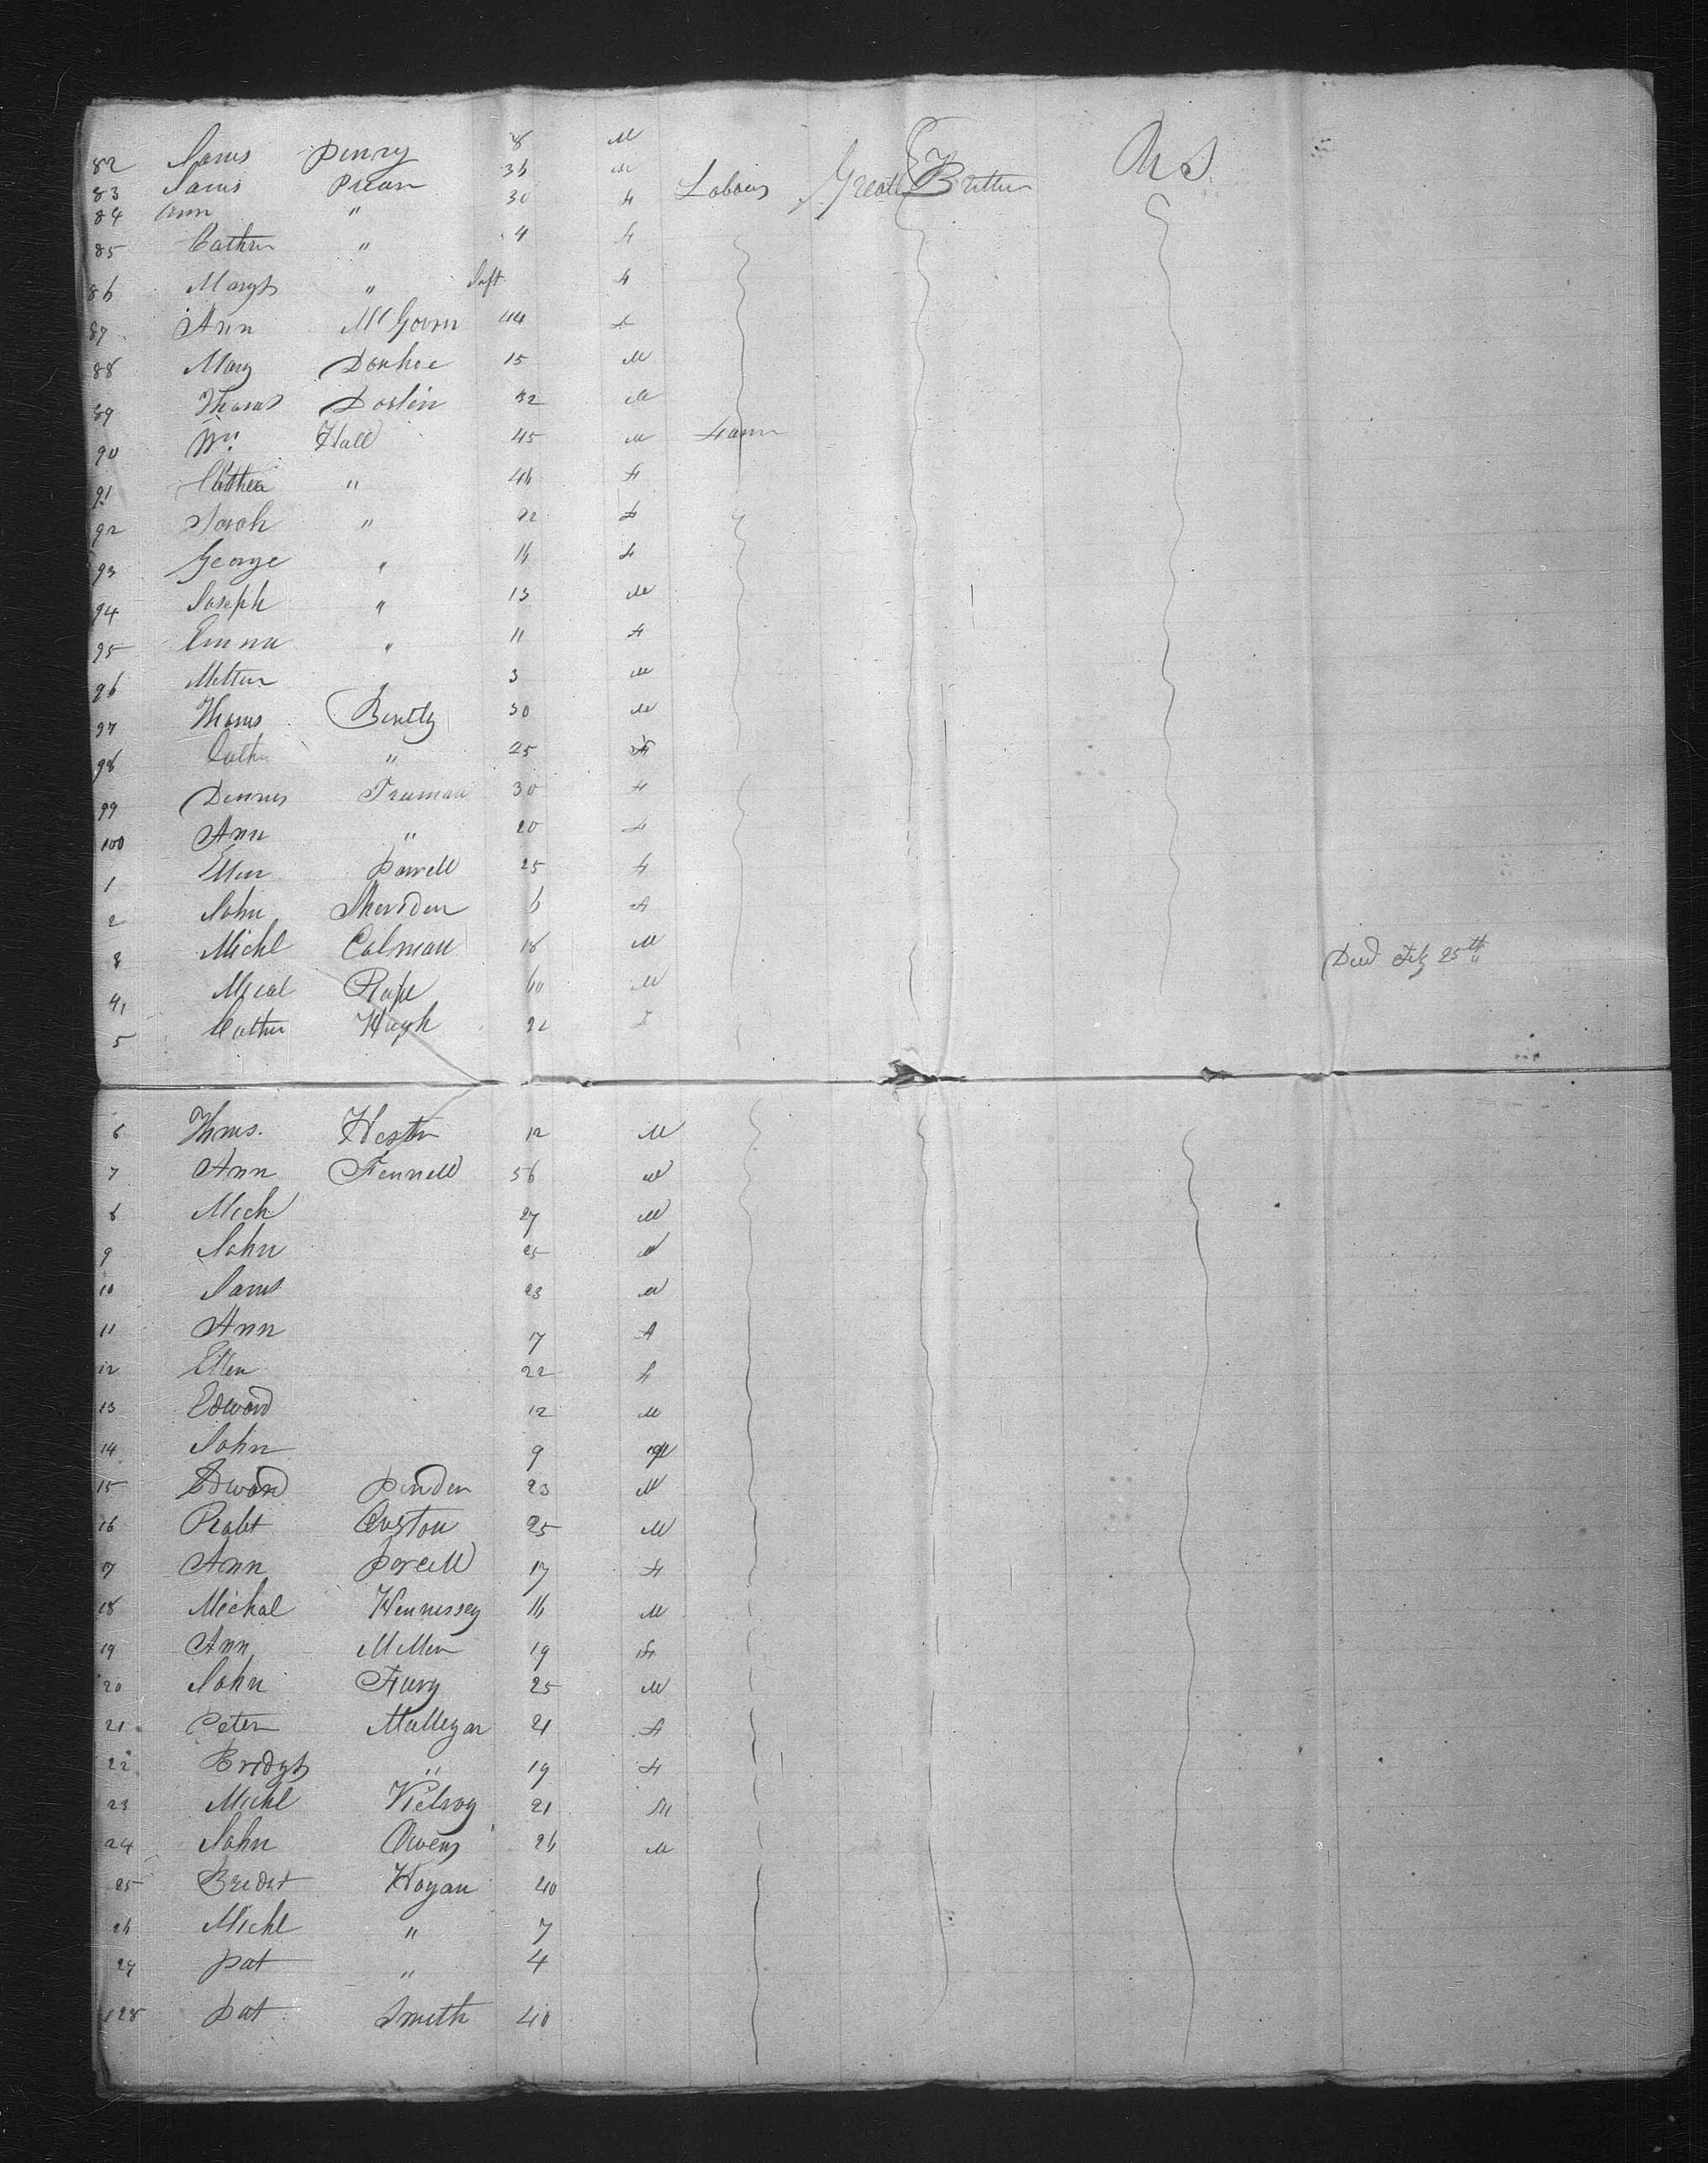 82 James Penry 8 M
83 James 36 M Labours Great Britten U S
84 Ann " 30 F
85 Cathrn " 4 F
86 Margt " Inft F
87 Ann McGovrn 44 F
88 Mary Donhoe 15 M
89 Thomas Doslin 32 M
90 Wm Hall 45 M Farmr
91 " 46 F
92 Sarah " 22 F
93 George " 16 F
94 Joseph " 13 M
95 Emma " 11 F
96 " 3 M
97 Thoms Bently 30 M
98 Cathn " 25 F
99 Dennes Truman 30 F
100 Ann " 20 F
1 Ellen Powell 25 F
2 John Sheridon 6 F
3 Michl Calman 18 M Died Feb 25th
4 Mical 60 M
5 Cathn Hugh 22 F
6 Thms. Hestn 12 M
7 Ann Fennell 56 M
8 Mich 27 M
9 John 25 M
10 James 23 M
11 Ann 7 F
12 Ellen 22 F
13 Edward 12 M
14 John 9 M
15 Edward Pender 23 M
16 Robt Custon 25 M
17 Ann Porcell 17 F
18 Michal Hennessey 16 M
19 Ann Miller 19 F
20 John Fury 25 M
21 Peter Mullegan 21 F
22 Bridgt " 19 F
23 Michl Kielroy 21 M
24 John Owens 26 M
25 Bredet Hogan 40
26 Michl " 7
27 Pat " 4
128 Pat Smeth 40